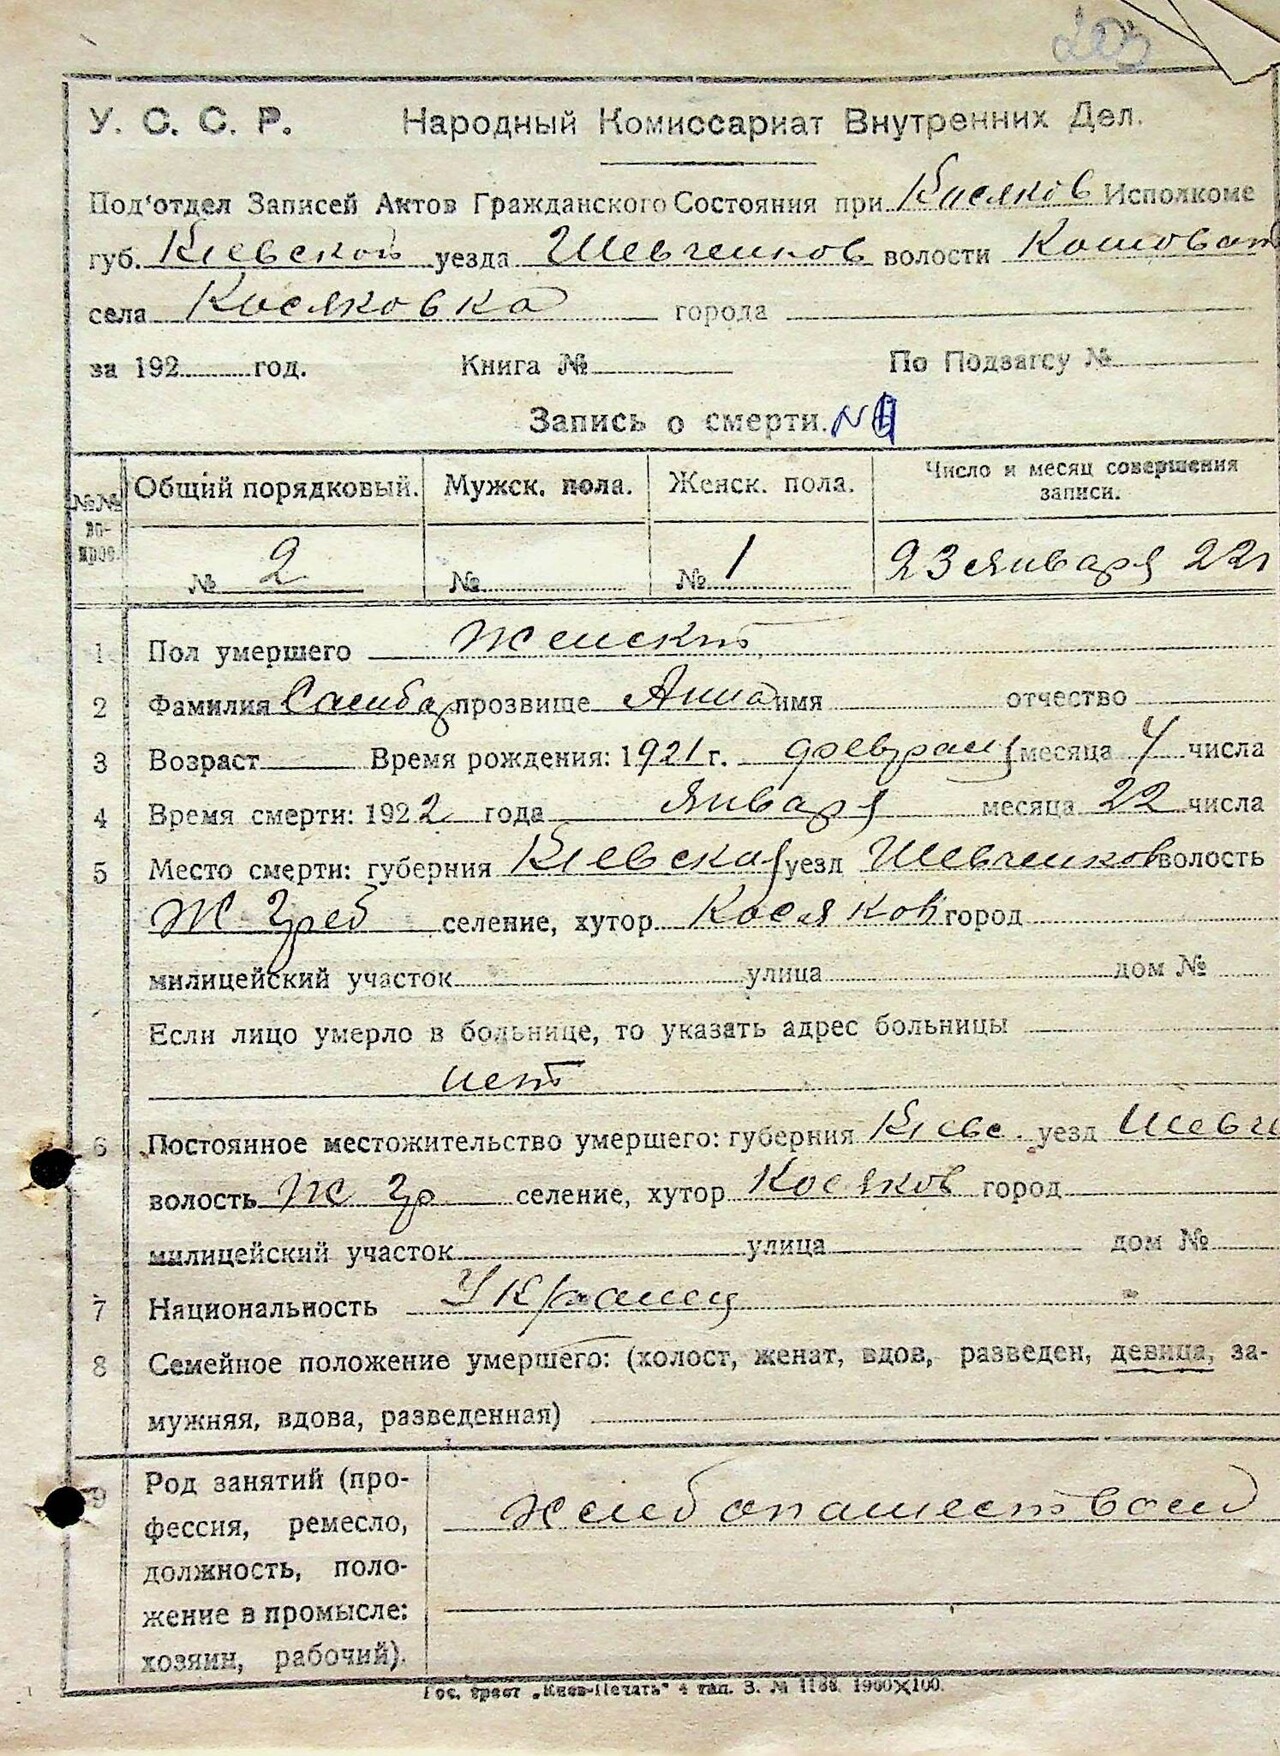 203
У. С. С. Р. Народный Комиссариат Внутренних Дел.
Под'отдел Записей Актов Гражданского Состояния при Косяков Исполкоме
губ. Кіевской уезда Шевченков волости
села Косяковка города
за 192 год. Книга № По Подзагсу №
Запись о смерти. №
№№ вопрос. Общий порядковый. Мужск. пола. Женск. пола. Число и месяц совершения записи.
№ 2 № № 1 23 января 22г
1 Пол умершего Женский
2 Фамилия прозвище Анна имя отчество
3 Возраст Время рождения: 1921 г. февраля месяца 4 числа
4 Время смерти: 1922 года января месяца 22 числа
5 Место смерти: губерния Кіевская уезд Шевченков волость
Ж Греб селение, хутор Косяков город
милицейский участок улица дом №
Если лицо умерло в больнице, то указать адрес больницы
нет
6 Постоянное местожительство умершего: губерния Кіевс. уезд Шевч
волость Ж Гр селение, хутор Косяков город
милицейский участок улица дом №
7 Национальность Украинец
8 Семейное положение умершего: (холост, женат, вдов, разведен, девица, за-
мужняя, вдова, разведенная)
9 Род занятий (про-
фессия, ремесло,
должность, поло-
жение в промысле:
хозяин, рабочий).
хлебопашество
Гос. трест „Киев-Печать" 4 тип. З. № 1188. 1900×100.